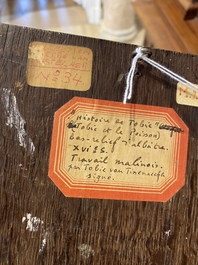 N° 34
"Histoire de Tobie"
(Tobie et le Poisson)
bas-relief d'albâtre.
XVI S.
Travail malinois.
par Tobie van
signé.